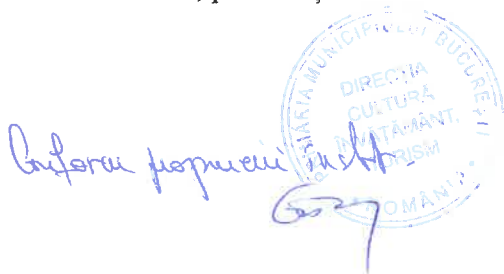 PRIMĂRIA MUNICIPIULUI BUCUREȘTI
DIRECȚIA
CULTURĂ
ÎNVĂȚĂMÂNT,
TURISM
* ROMÂNIA *
Conform propunerii instit.